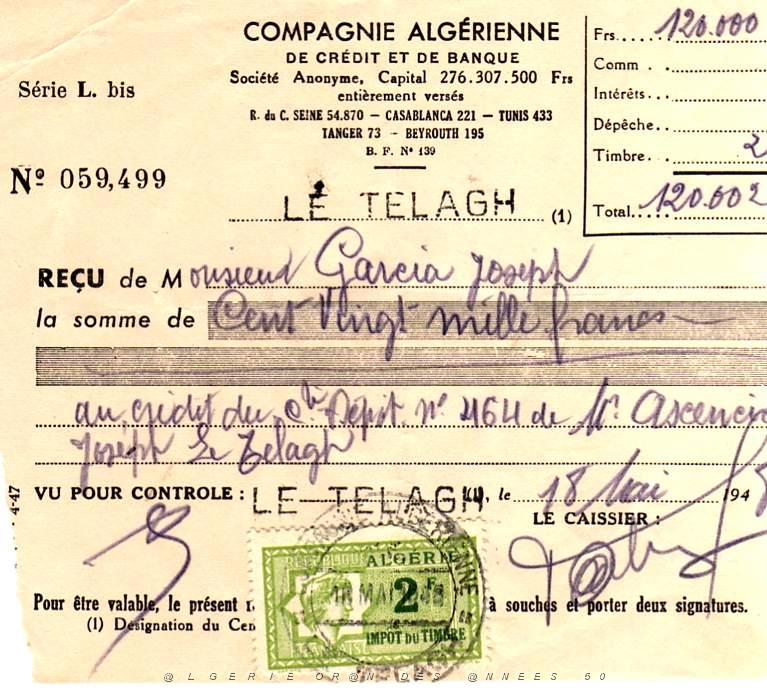 COMPAGNIE ALGÉRIENNE
DE CRÉDIT ET DE BANQUE
Société Anonyme, Capital 276.307.500 Frs
entièrement versés
R. du C. SEINE 54.870 — CASABLANCA 221 — TUNIS 433
TANGER 73 - BEYROUTH 195
B. F. Nº 139
Série L. bis
Nº 059,499
LE TELAGH (1)
Frs..... 120.000
Comm . .
Intérêts...
Dépêche..
Timbre. . . 2
Total..... 120.002
REÇU de Monsieur Garcia Joseph
la somme de Cent Vingt mille francs
au crédit du Cte Dépôt nº 464 de Mr Ascencio
Joseph Le Telagh
4-47
VU POUR CONTROLE : LE TELAGH, le 18 Mai 194
LE CAISSIER :
ALGÉRIE
18 MAI
2 Fs
IMPOT DU TIMBRE
Pour être valable, le présent à souches et porter deux signatures.
(1) Désignation du
@LGERIE OR@N DES @NNEES 50